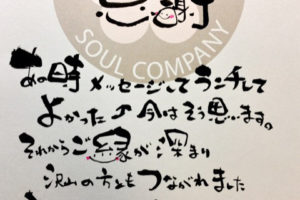 感謝
SOUL COMPANY
あの時メッセージしてランチして
よかった♪今はそう思います。
それからご縁が深まり
沢山の方ともつながれました